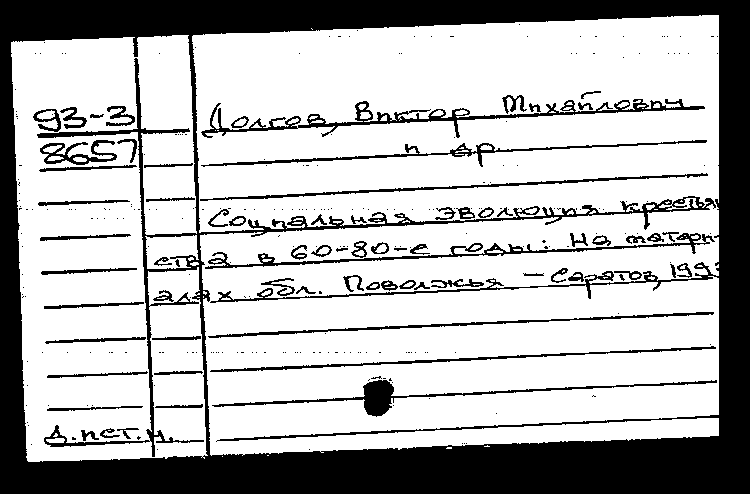 93-3
8657
Долгов, Виктор Михайлович
и др.
Социальная эволюция крестьян
ства в 60-80-е годы: На матери-
алах обл. Поволжья - Саратов, 1993
д.ист.н.